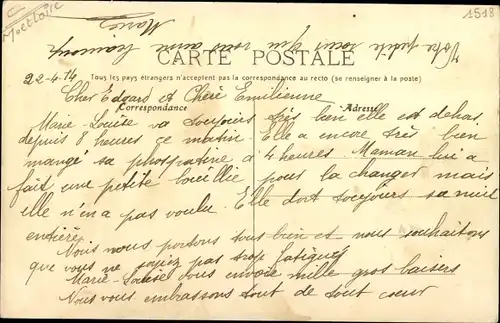 Mottoise
1518
Votre petite sœur qui vous aime beaucoup
Marie
CARTE POSTALE
22-4-14
Tous les pays étrangers n'acceptent pas la correspondance au recto (se renseigner à la poste)
Cher Edgard et Chère Emilienne
Correspondance
Adresse
Marie-Louise va toujours très bien elle est dehors
depuis 8 heures ce matin. Elle a encore très bien
mangé sa phosphatine à 4 heures. Maman lui a
fait une petite bouillie pour la changer mais
elle n'en a pas voulu. Elle dort toujours sa nuit
entière.
Nous nous portons tous bien et nous souhaitons
que vous ne soyiez pas trop fatigués
Marie-Louise vous envoie mille gros baisers
Nous vous embrassons tout de tout cœur